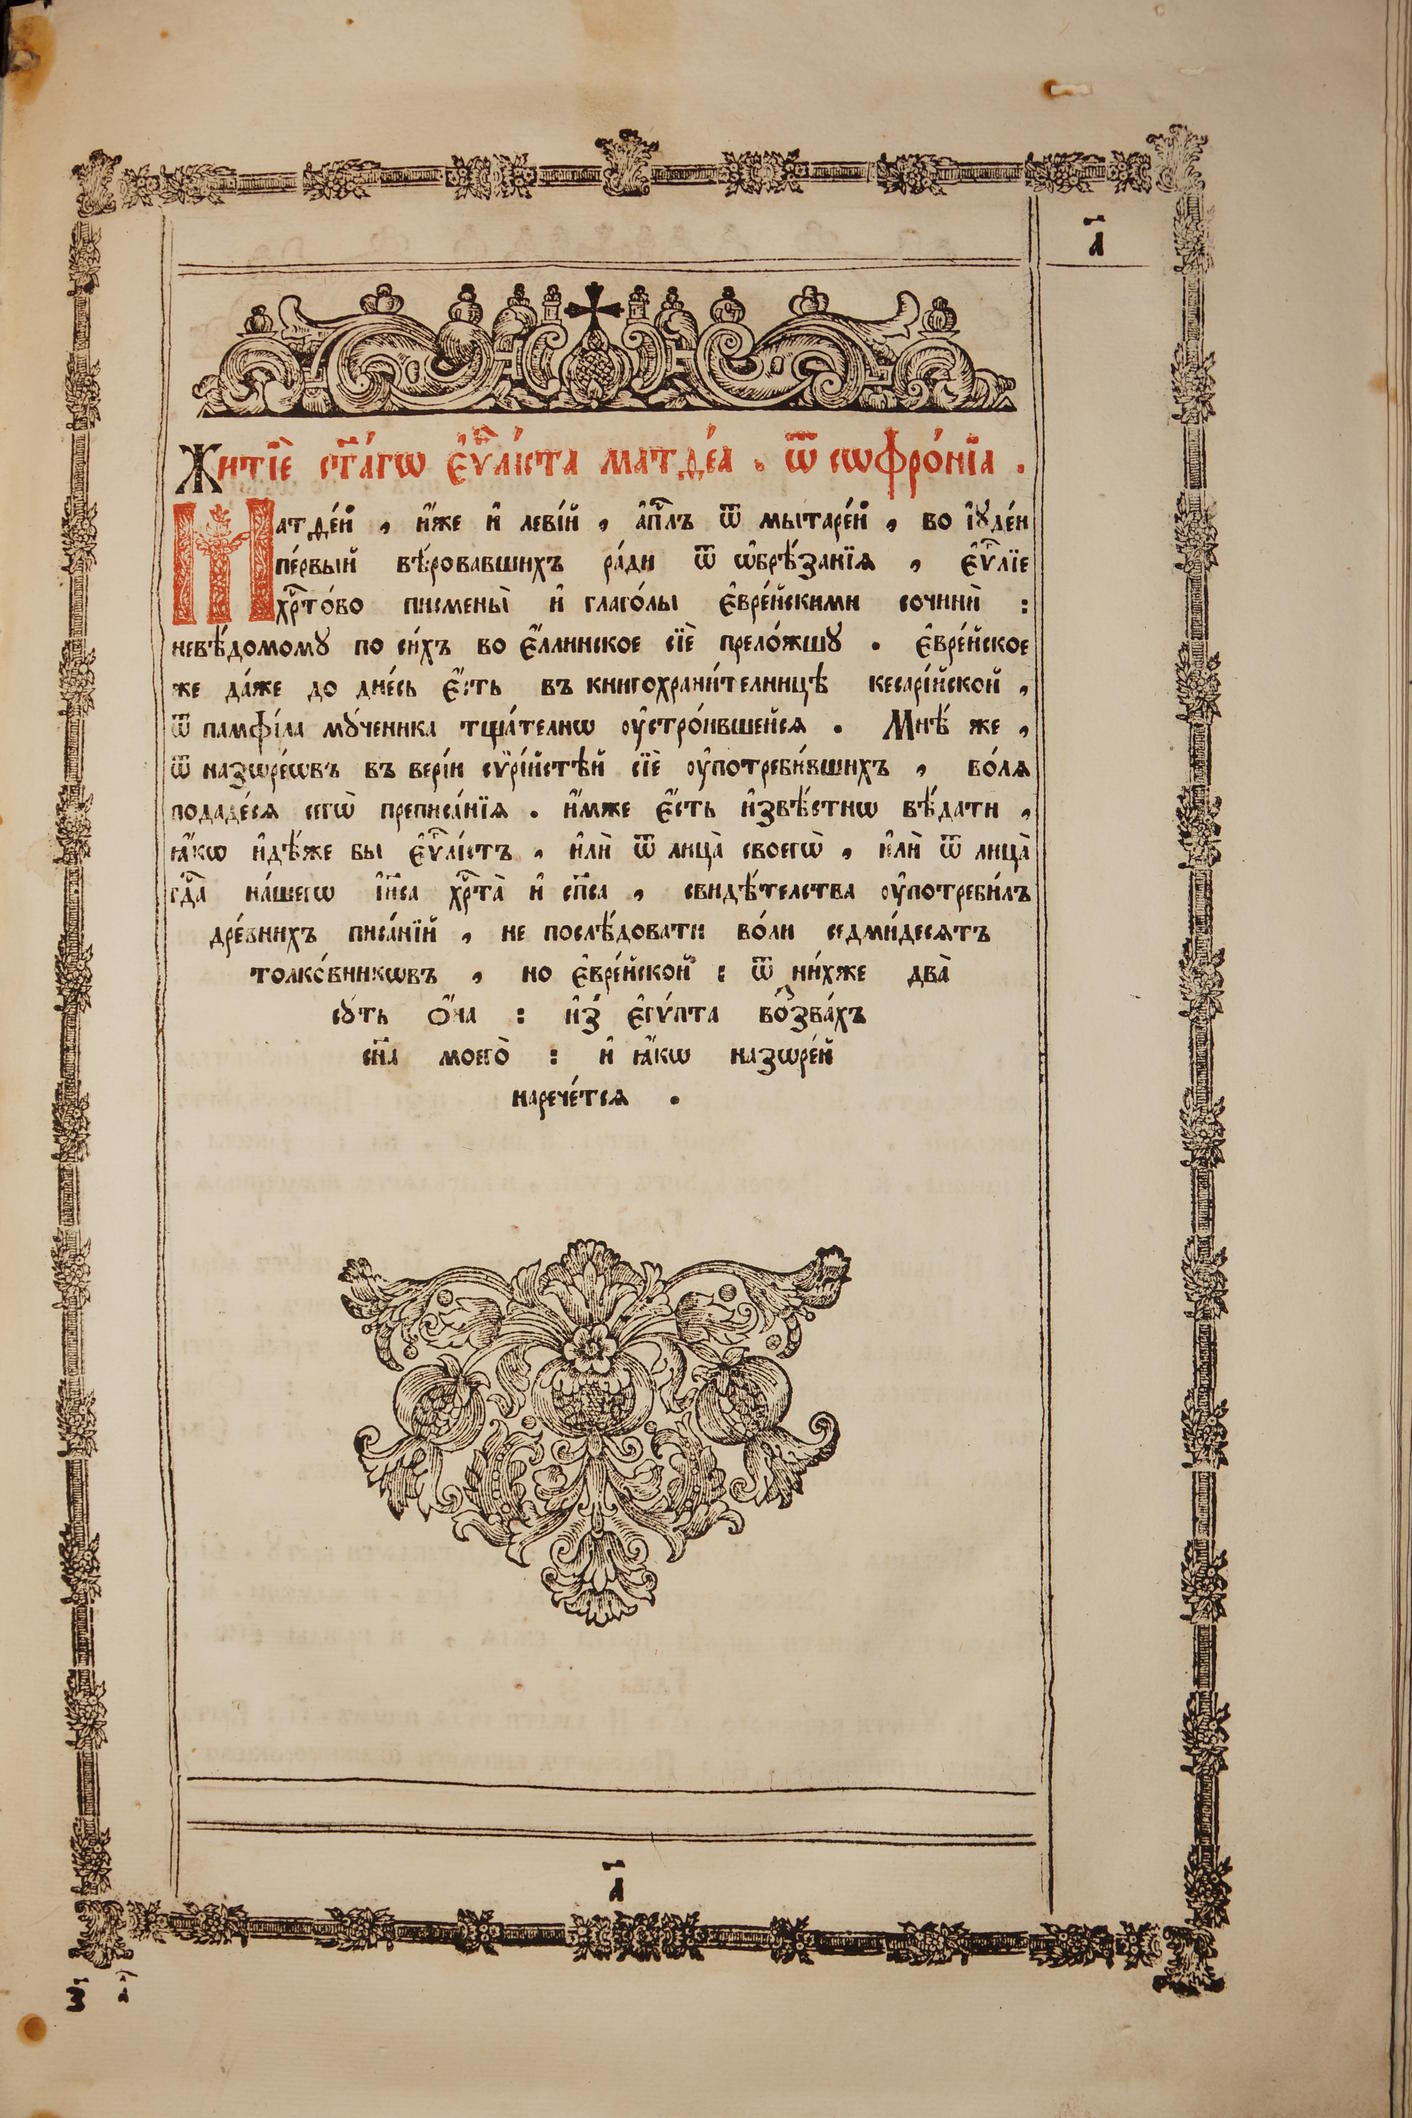 а҃
Житїѐ ст҃а́гѡ є҆ѵⷢ҇лі́ста матѳе́а . ѿ сѡфро́нїа .
Матѳе́й , и҆́же и҆ леві́й , а҆пⷭ҇лъ ѿ мытаре́й , во і҆ꙋде́и
пе́рвый вѣ́ровавшихъ ра́ди ѿ ѡ҆брѣ́занїѧ , є҆ѵⷢ҇лїе
хрⷭ҇то́во писмены̀ и҆ глаго́лы є҆вре́йскими сочинѝ :
невѣ́домомꙋ по си́хъ во є҆́ллинское сїѐ прело́жшꙋ . є҆вре́йское
же да́же до дне́сь є҆́сть въ книгохрани́телницѣ кесарі́йской ,
ѿ памфі́ла мꙋ́ченика тща́телнѡ ᲂу҆стро́ившейсѧ . Мнѣ́ же ,
ѿ назѡре́ѡвъ въ вері́и сѵрі́йстѣй сїѐ ᲂу҆потреби́вшихъ , во́лѧ
подаде́сѧ сегѡ̀ преписа́нїѧ . и҆́мже є҆́сть и҆звѣ́стнѡ вѣ́дати ,
ꙗ҆́кѡ и҆дѣ́же бы є҆ѵⷢ҇лі́стъ , и҆лѝ ѿ лица̀ своегѡ̀ , и҆лѝ ѿ лица̀
гдⷭ҇а на́шегѡ і҆и҃са хрⷭ҇та̀ и҆ сп҃са , свидѣ́телства ᲂу҆потреби́лъ
дре́внихъ писа́нїй , не послѣ́довати во́ли седмидесѧ́тъ
толко́вникѡвъ , но є҆вре́йской : ѿ ни́хже два̀
сꙋ́ть ѻ҆́на : и҆з̾ є҆гѵ́пта воззва́хъ
сн҃а моего̀ : и҆ ꙗ҆́кѡ назѡре́й
нарече́тсѧ .
а҃
з҃ а҃